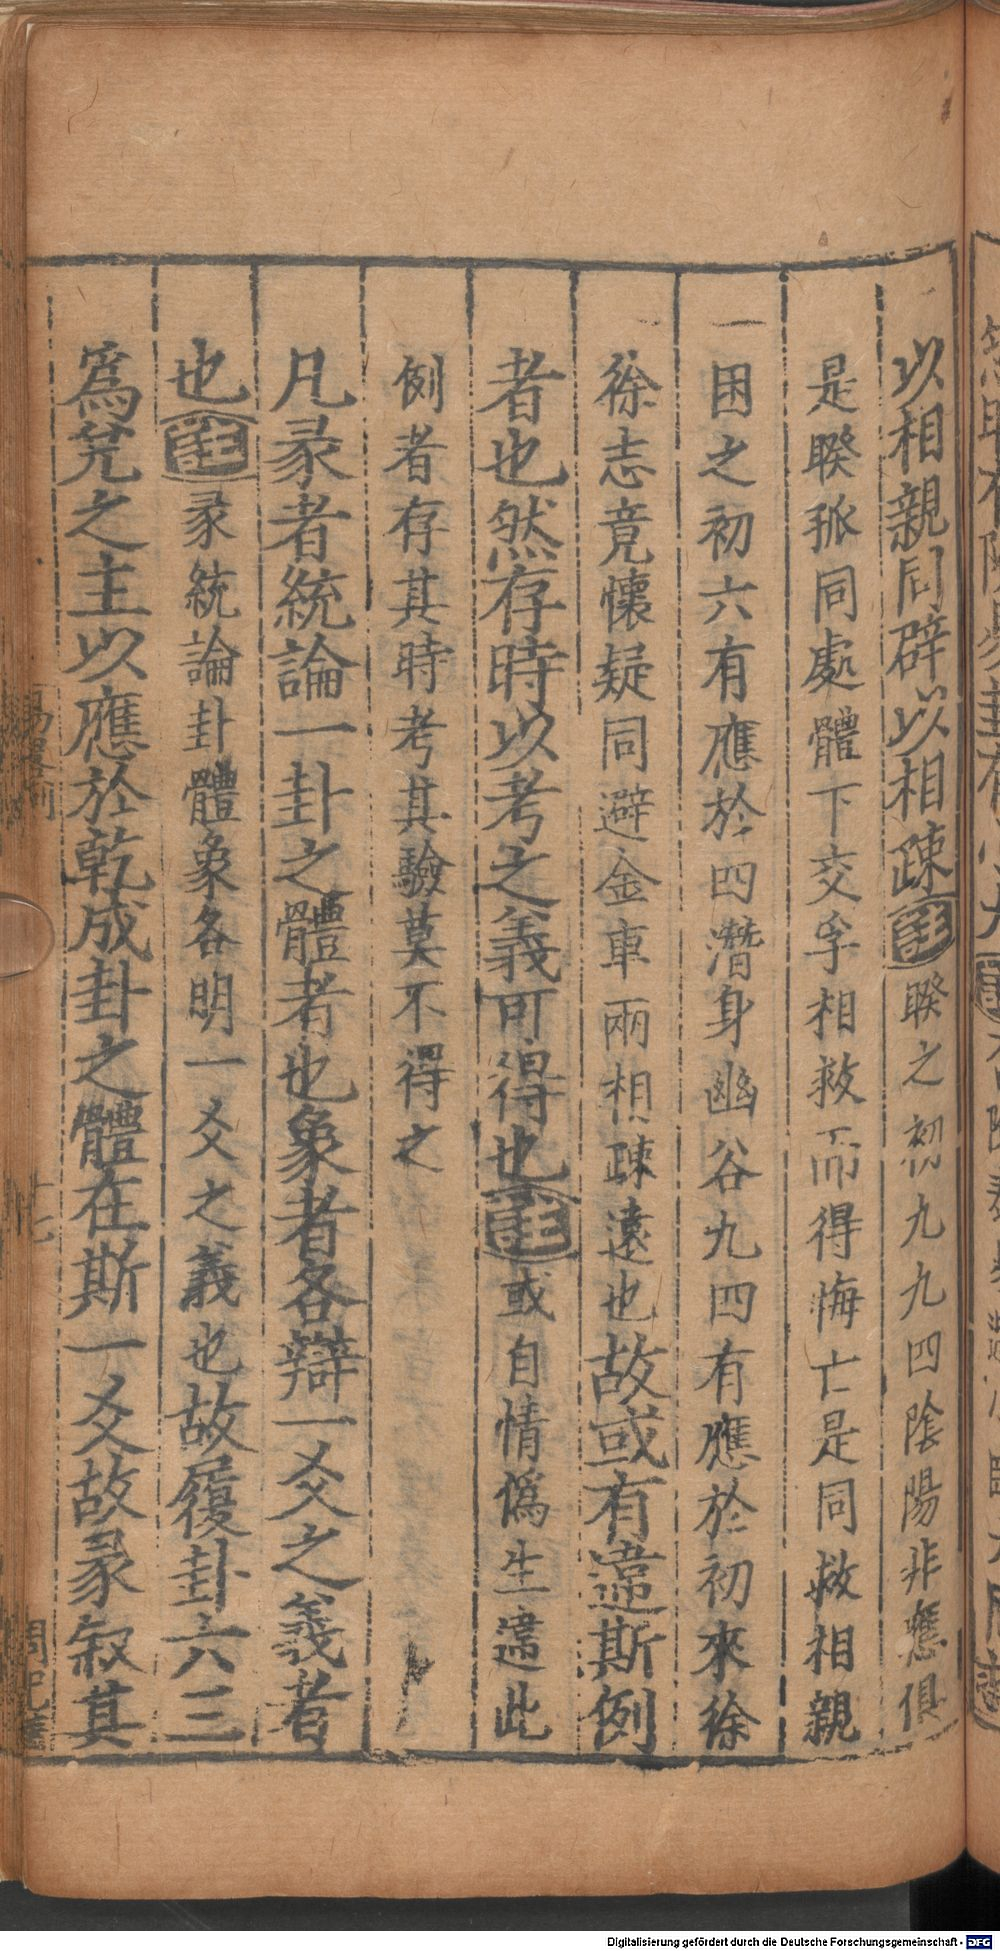 以相親同辟以相疎註睽之初九九四陰陽非應俱
是睽孤同處體下交孚相救而得悔亡是同救相親
困之初六有應於四潛身幽谷九四有應於初來徐
徐志竟懷疑同避金車兩相疎遠也故或有違斯例
者也然存時以考之義可得也註或自情僞生違此
例者存其時考其驗莫不得之
凡彖者統論一卦之體者也象者各辯一爻之義者
也註彖統論卦體象各明一爻之義也故履卦六三
爲兊之主以應於乾成卦之體在斯一爻故彖叙其
易畧例
十七
Digitalisierung gefördert durch die Deutsche Forschungsgemeinschaft - DFG